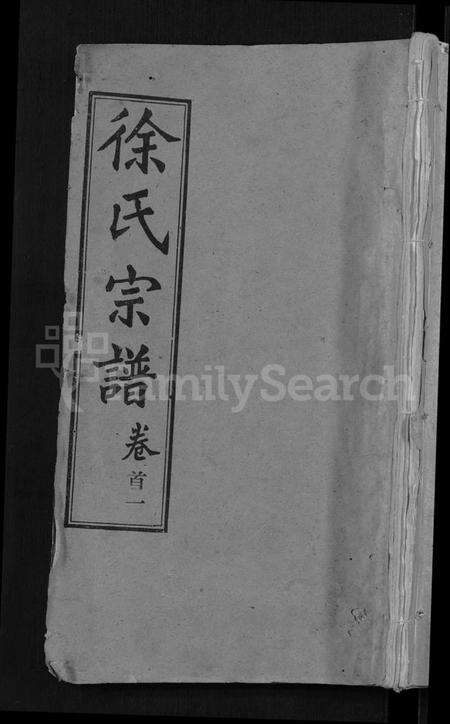 徐氏宗譜 卷首一
FamilySearch